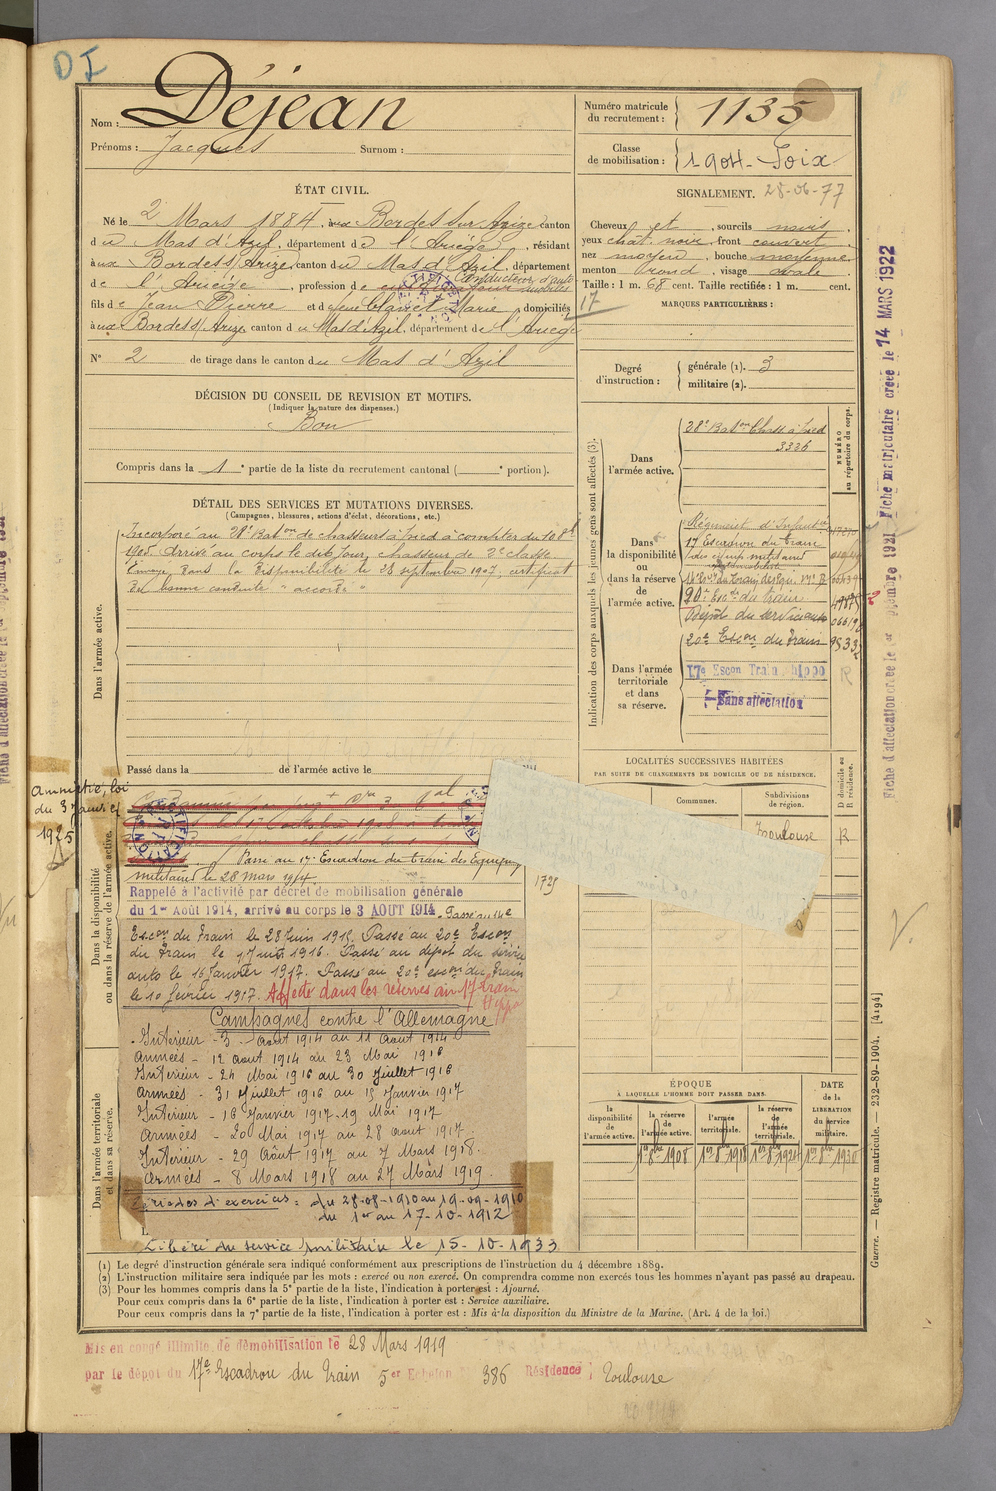 DI
Nom : Déjean
Prénoms : Jacques Surnom :
Numéro matricule du recrutement : 1135
Classe de mobilisation : 1904 - Foix
ÉTAT CIVIL.
Né le 2 Mars 1884, aux Bordes sur Arize canton
du Mas d'Azil, département de l'Ariège, résidant
aux Bordes s/ Arize, canton du Mas d'Azil, département
de l'Ariège, profession de Conducteur d'automobiles
fils de Jean Pierre et de feue Claret Marie, domiciliés
aux Bordes s/ Arize canton du Mas d'Azil, département de l'Ariège
N° 2 de tirage dans le canton du Mas d'Azil
SIGNALEMENT. 28-06-77
Cheveux et , sourcils noirs
yeux chât. noir, front couvert
nez moyen, bouche moyenne
menton rond, visage ovale
Taille : 1 m. 68 cent. Taille rectifiée : 1 m. cent.
17 MARQUES PARTICULIÈRES :
Degré d'instruction : générale (1). 3
militaire (2).
DÉCISION DU CONSEIL DE REVISION ET MOTIFS.
(Indiquer la nature des dispenses.)
Bon
Compris dans la 1e partie de la liste du recrutement cantonal ( e portion).
DÉTAIL DES SERVICES ET MUTATIONS DIVERSES.
(Campagnes, blessures, actions d'éclat, décorations, etc.)
Dans l'armée active.
Incorporé au 28e Baton de chasseurs à pied à compter du 10 8bre
1905. Arrivé au corps le dit jour, chasseur de 2e classe.
Envoyé dans la disponibilité le 28 septembre 1907, certificat
de bonne conduite "accordé"
Passé dans la de l'armée active le
Amnistié, loi
du 3 janvier
1925
Dans la disponibilité
ou dans la réserve de l'armée active.
RECTIFICATION
Passé au 17e Escadron du train des Equipages
militaires le 28 mars 1914.
1729
Rappelé à l'activité par décret de mobilisation générale
du 1er Août 1914, arrivé au corps le 3 AOUT 1914. Passé au 14e
Escon du Train le 28 Juin 1915. Passé au 20e Escon
du Train le 1916. Passé au dépôt du service
auto le 16 Janvier 1917. Passé au 20e escon du Train
le 10 février 1917. Affecté dans les réserves au 17e train
hippo
Campagnes contre l'Allemagne
Intérieur - 3 - Août 1914 au 11 Août 1914
Armées - 12 Août 1914 au 23 Mai 1916
Intérieur - 24 Mai 1916 au 30 Juillet 1916
Armées - 31 Juillet 1916 au 15 Janvier 1917
Intérieur - 16 Janvier 1917 - 19 Mai 1917
Armées - 20 Mai 1917 au 28 Août 1917
Intérieur - 29 Août 1917 au 7 Mars 1918.
Armées - 8 Mars 1918 au 27 Mars 1919.
Dans l'armée territoriale
et dans sa réserve.
Périodes d'exercices : du 28-08-1910 au 19-09-1910
du 1er au 17-10-1912
Libéré du service militaire le 15-10-1933
Indication des corps auxquels les jeunes gens sont affectés (3).
NUMÉRO
au répertoire du corps.
Dans l'armée active.
28e Baton Chass. à pied
3326
Dans la disponibilité ou dans la réserve de l'armée active.
Régiment d'Infantrie
17 Escadron du train
des équip. militaires
20e Escon du train
Dépôt du service auto
20e Escon du Train 9533
Dans l'armée territoriale et dans sa réserve.
17e Escon Train hippo R
Sans affectation
LOCALITÉS SUCCESSIVES HABITÉES
PAR SUITE DE CHANGEMENTS DE DOMICILE OU DE RÉSIDENCE.
Communes. Subdivisions de région. D domicile ou R résidence.
Toulouse R
ÉPOQUE
À LAQUELLE L'HOMME DOIT PASSER DANS.
DATE de la LIBÉRATION du service militaire.
la disponibilité de l'armée active. la réserve de l'armée active. l'armée territoriale. la réserve de l'armée territoriale.
1er 8bre 1908 1er 8bre 1918 1er 8bre 1924 1er 8bre 1930
(1) Le degré d'instruction générale sera indiqué conformément aux prescriptions de l'instruction du 4 décembre 1889.
(2) L'instruction militaire sera indiquée par les mots : exercé ou non exercé. On comprendra comme non exercés tous les hommes n'ayant pas passé au drapeau.
(3) Pour les hommes compris dans la 5e partie de la liste, l'indication à porter est : Ajourné.
Pour ceux compris dans la 6e partie de la liste, l'indication à porter est : Service auxiliaire.
Pour ceux compris dans la 7e partie de la liste, l'indication à porter est : Mis à la disposition du Ministre de la Marine. (Art. 4 de la loi.)
Mis en congé illimité de démobilisation le 28 Mars 1919
par le dépôt du 17e Escadron du Train 5er Echelon 386 Résidence Toulouse
Fiche matriculaire créée le 14 MARS 1922
Fiche d'affectation créée le 1er septembre 1921
Guerre. — Registre matricule. — 232-89-1904. [4194]
V.